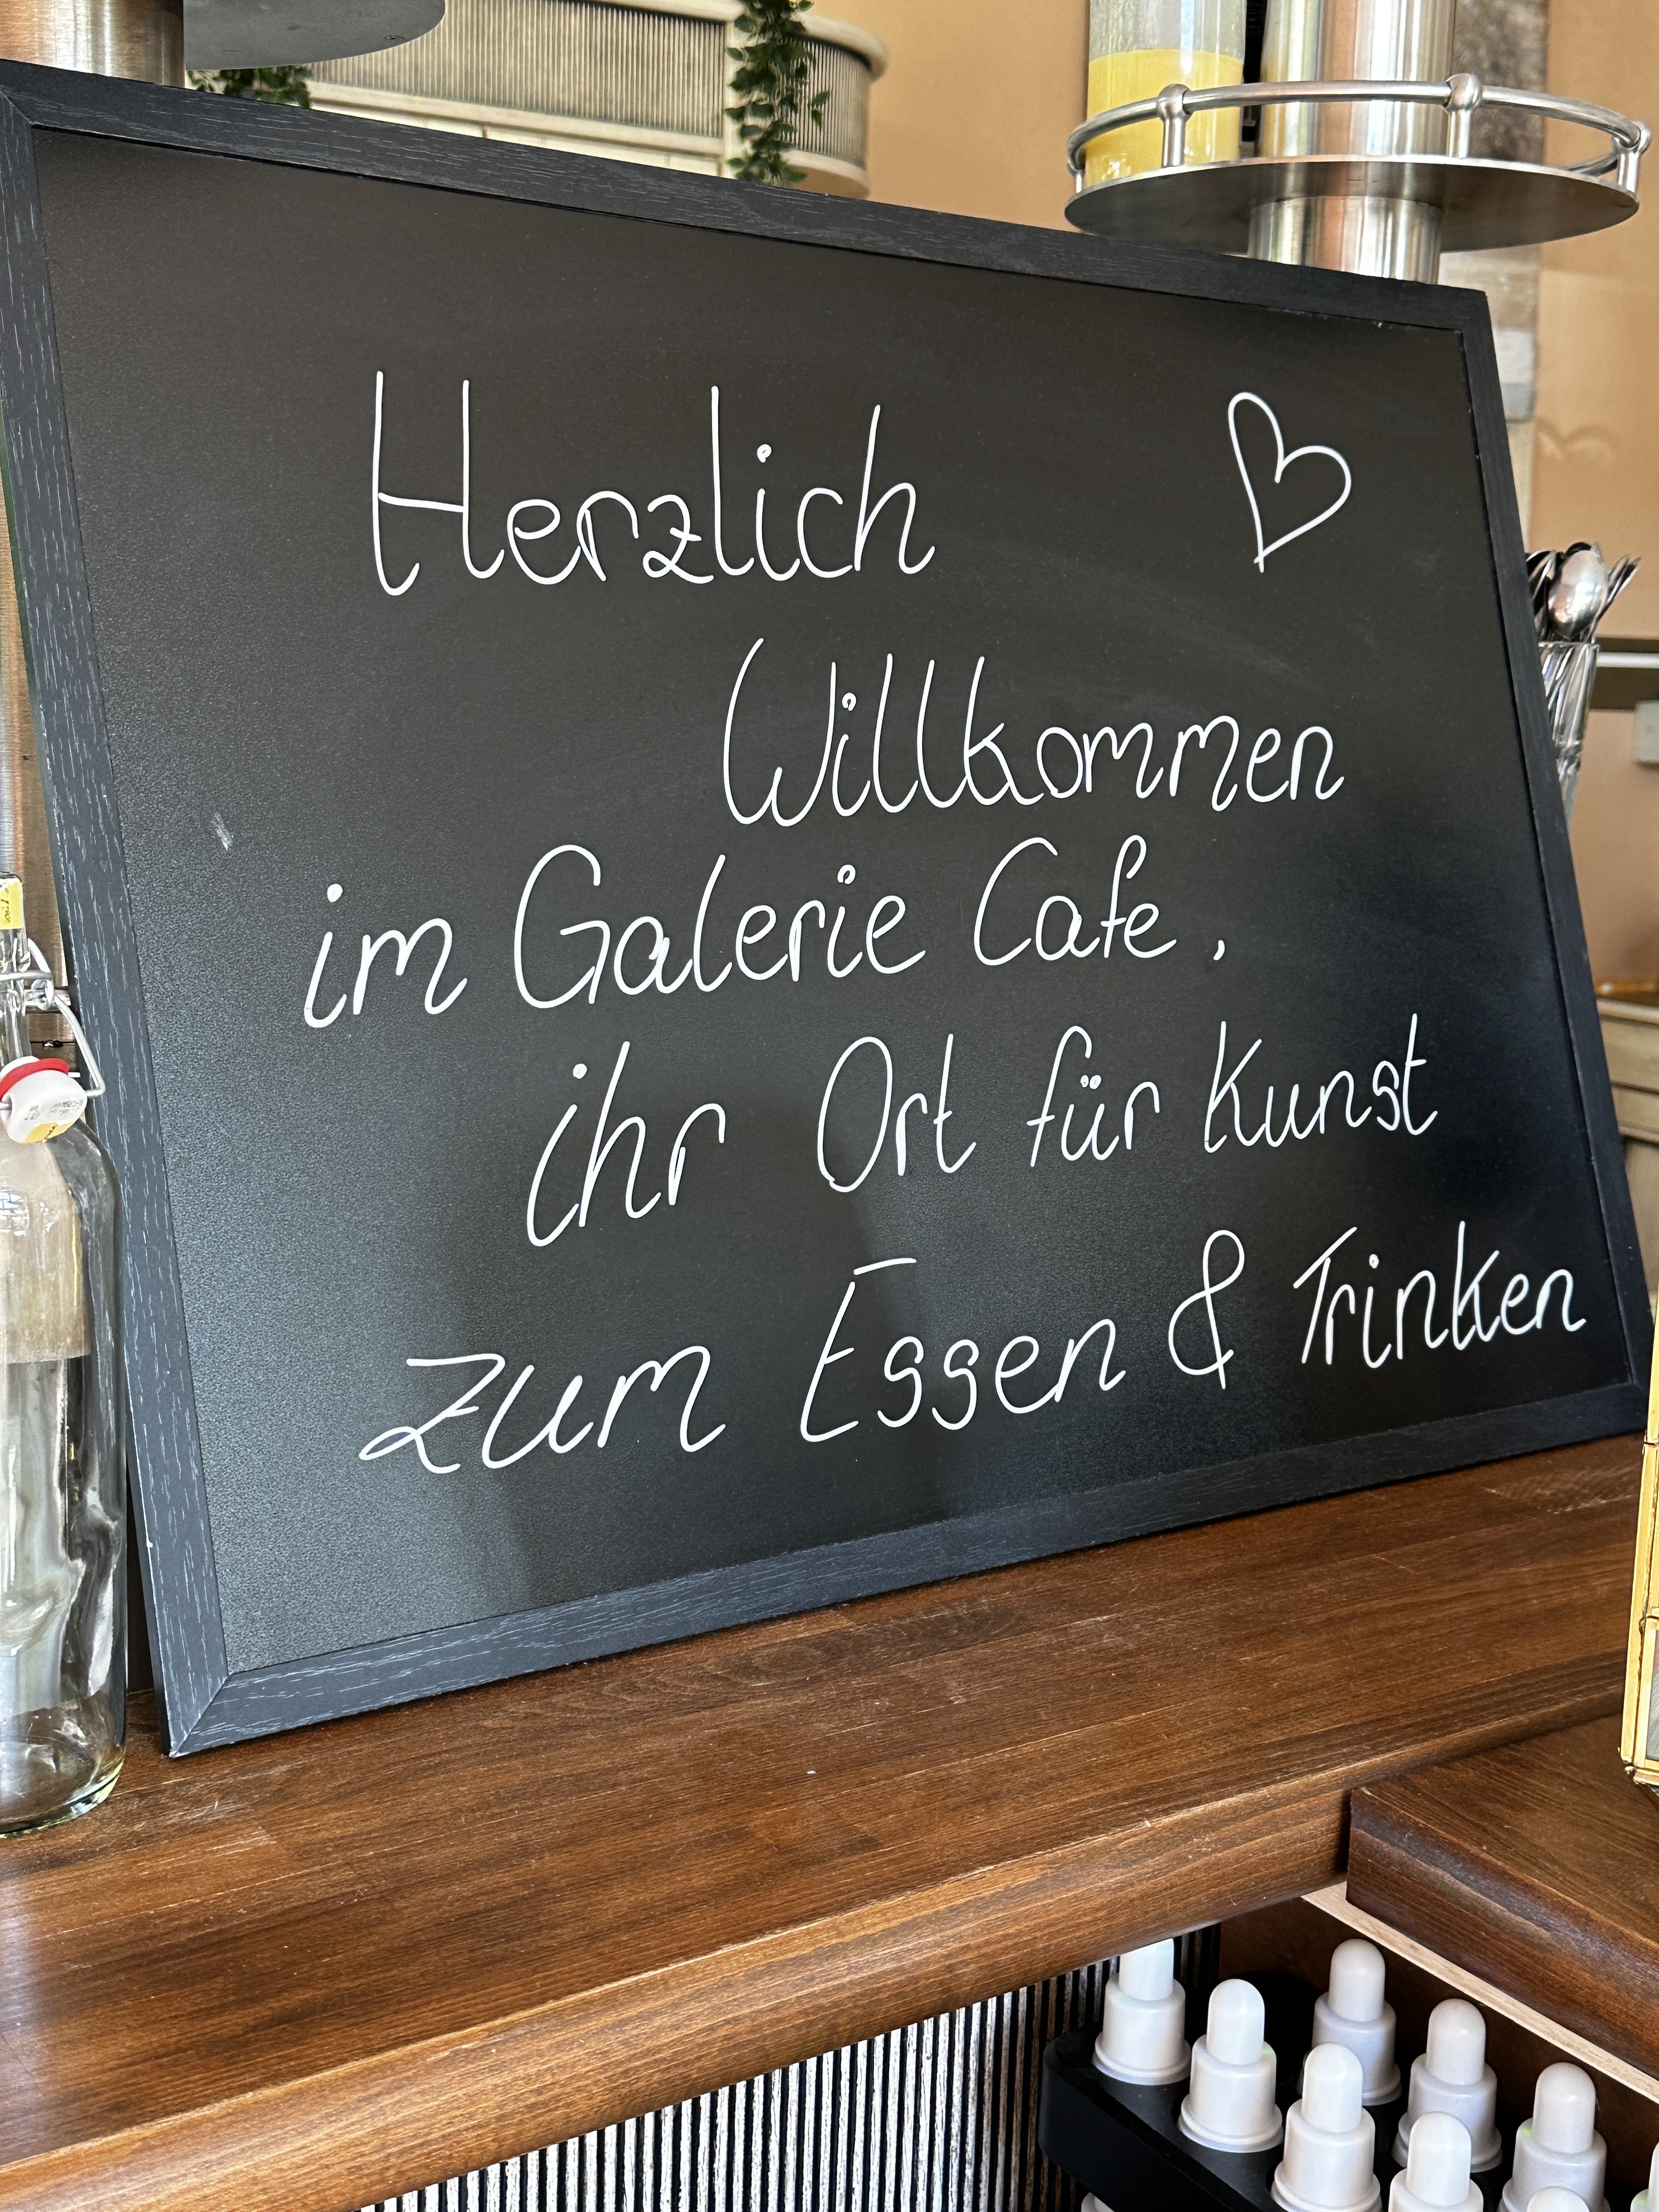 Herzlich
Willkommen
im Galerie Cafe,
ihr Ort für Kunst
zum Essen & Trinken